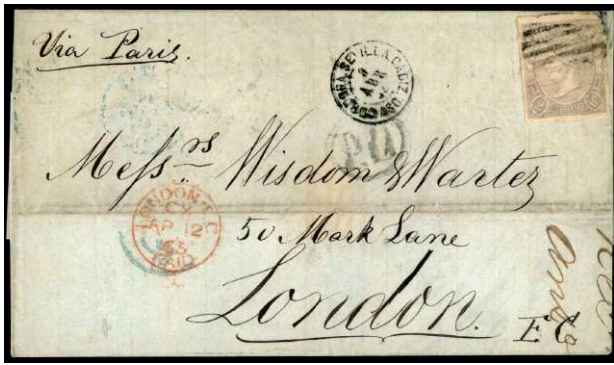 Via Paris.
CORDOBA SEVILLA CADIZ
8
ABR
P.D.
Mefs.rs Wisdom & Warter
LONDON E.C
AP 12
65
PAID
50 Mark Lane
London.
E C